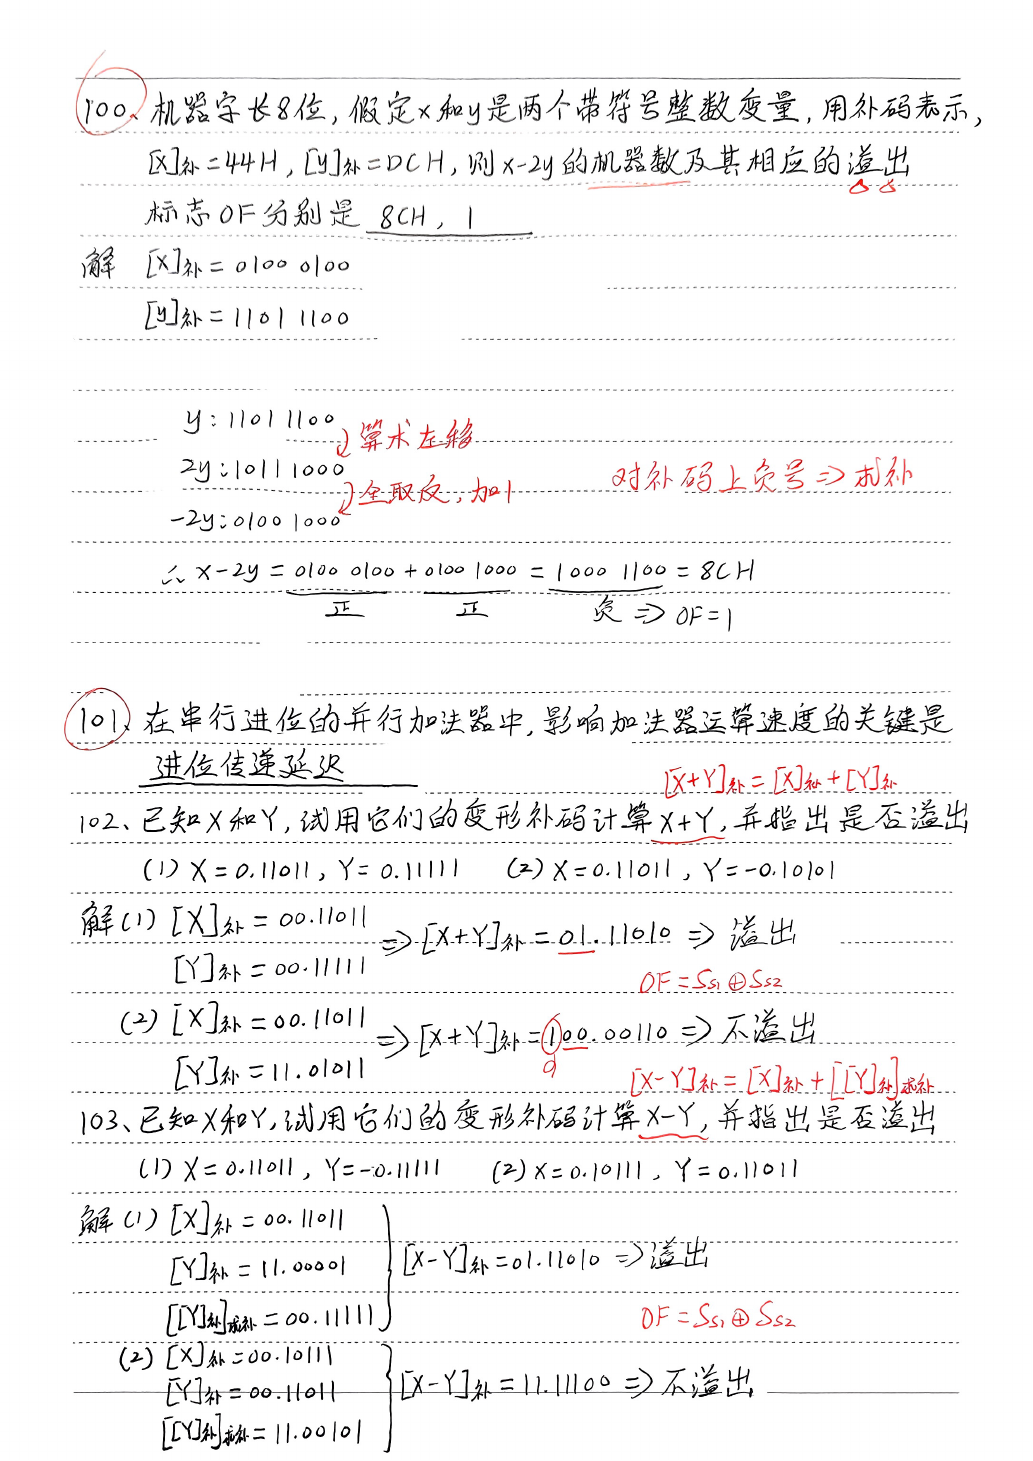 100、机器字长8位，假定x和y是两个带符号整数变量，用补码表示，
[x]补=44H，[y]补=DCH，则x-2y的机器数及其相应的溢出
标志OF分别是 8CH，1
解 [X]补=0100 0100
[y]补=1101 1100
y：1101 1100
算术左移
2y：1011 1000
对补码上负号⇒求补
全取反，加1
-2y：0100 1000
∴ x-2y=0100 0100+0100 1000=1000 1100=8CH
正 正 负⇒OF=1
101、在串行进位的并行加法器中，影响加法器运算速度的关键是
进位传递延迟
[X+Y]补=[X]补+[Y]补
102、已知X和Y，试用它们的变形补码计算X+Y，并指出是否溢出
(1) X=0.11011，Y=0.11111 (2) X=0.11011，Y=-0.10101
解(1) [X]补=00.11011
⇒[X+Y]补=01.11010⇒溢出
[Y]补=00.11111
OF=Ss1⊕Ss2
(2) [X]补=00.11011
⇒[X+Y]补=100.00110⇒不溢出
[Y]补=11.01011
[X-Y]补=[X]补+[[Y]补]求补
103、已知X和Y，试用它们的变形补码计算X-Y，并指出是否溢出
(1) X=0.11011，Y=-0.11111 (2) X=0.10111，Y=0.11011
解(1) [X]补=00.11011
[Y]补=11.00001
[X-Y]补=01.11010⇒溢出
[[Y]补]求补=00.11111
OF=Ss1⊕Ss2
(2) [X]补=00.10111
[Y]补=00.11011
[X-Y]补=11.11100⇒不溢出
[[Y]补]求补=11.00101